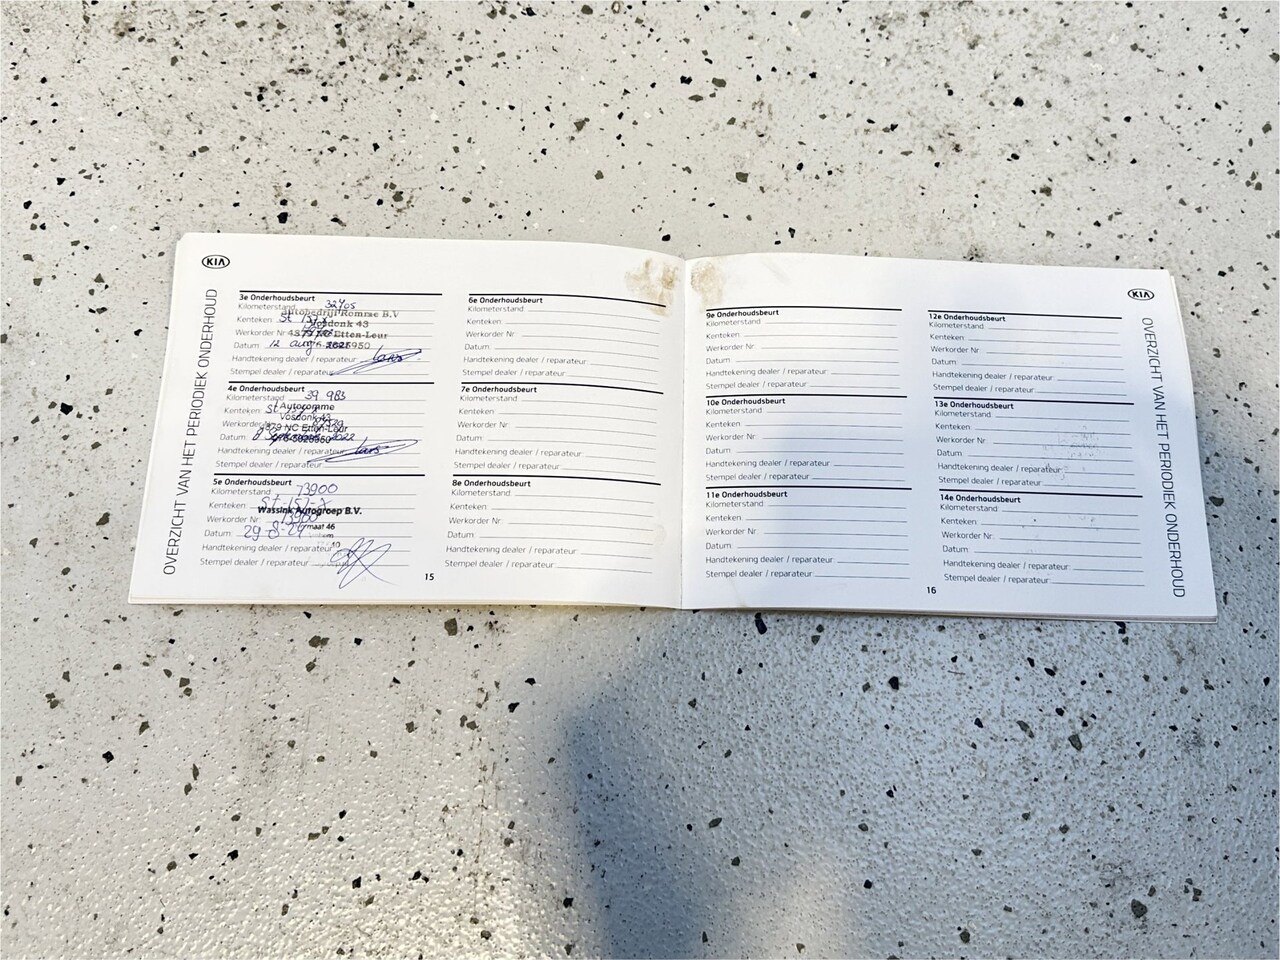 KIA
OVERZICHT VAN HET PERIODIEK ONDERHOUD
3e Onderhoudsbeurt
Kilometerstand 32705
Autobedrijf Romme B.V
Kenteken:
Vosdonk 43
Werkorder Nr: Etten-Leur
Datum: 12 aug
Handtekening dealer / reparateur:
Stempel dealer / reparateur:
4e Onderhoudsbeurt
Kilometerstand 39 983
Kenteken:
Autoromme
Vosdonk 43
Werkorder
4879 NC Etten-Leur
Datum: 8 2022
Handtekening dealer / reparateur:
Stempel dealer / reparateur:
5e Onderhoudsbeurt
Kilometerstand 73900
Kenteken:
Wassink Autogroep B.V.
Werkorder Nr:
Datum: 29-8-24
Handtekening dealer / reparateur:
Stempel dealer / reparateur:
15
6e Onderhoudsbeurt
Kilometerstand:
Kenteken:
Werkorder Nr:
Datum:
Handtekening dealer / reparateur:
Stempel dealer / reparateur:
7e Onderhoudsbeurt
Kilometerstand:
Kenteken:
Werkorder Nr:
Datum:
Handtekening dealer / reparateur:
Stempel dealer / reparateur:
8e Onderhoudsbeurt
Kilometerstand:
Kenteken:
Werkorder Nr:
Datum:
Handtekening dealer / reparateur:
Stempel dealer / reparateur:
9e Onderhoudsbeurt
Kilometerstand:
Kenteken:
Werkorder Nr:
Datum:
Handtekening dealer / reparateur:
Stempel dealer / reparateur:
10e Onderhoudsbeurt
Kilometerstand:
Kenteken:
Werkorder Nr:
Datum:
Handtekening dealer / reparateur:
Stempel dealer / reparateur:
11e Onderhoudsbeurt
Kilometerstand:
Kenteken:
Werkorder Nr:
Datum:
Handtekening dealer / reparateur:
Stempel dealer / reparateur:
16
12e Onderhoudsbeurt
Kilometerstand:
Kenteken:
Werkorder Nr:
Datum:
Handtekening dealer / reparateur:
Stempel dealer / reparateur:
13e Onderhoudsbeurt
Kilometerstand:
Kenteken:
Werkorder Nr:
Datum:
Handtekening dealer / reparateur:
Stempel dealer / reparateur:
14e Onderhoudsbeurt
Kilometerstand:
Kenteken:
Werkorder Nr:
Datum:
Handtekening dealer / reparateur:
Stempel dealer / reparateur:
KIA
OVERZICHT VAN HET PERIODIEK ONDERHOUD